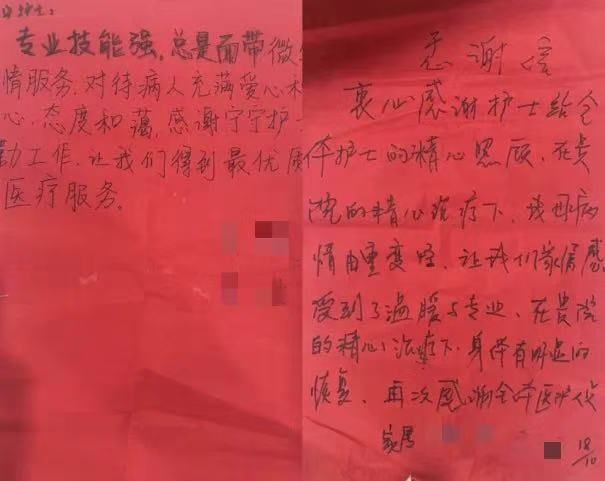 护士：
专业技能强，总是面带微
情服务，对待病人充满爱心和
心，态度和蔼，感谢宁宁护
勤工作，让我们得到最优质
医疗服务。
感谢信
衷心感谢护士给全
体护士的精心照顾，在贵
院的精心治疗下，我母病
情由重变轻，让我们家属感
受到了温暖与专业，在贵院
的精心治疗下，身体有明显的
恢复，再次感谢全体医护人
家属
18/10